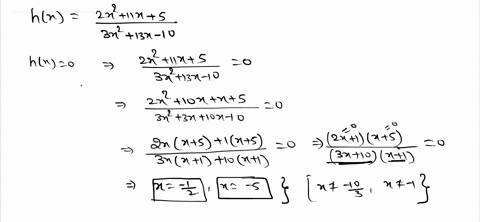 h(x) = (2x²+11x+5)/(3x²+13x-10)
h(x)=0 ⇒ (2x²+11x+5)/(3x²+13x-10) =0
⇒ (2x²+10x+x+5)/(3x²+3x+10x-10) =0
⇒ (2x(x+5)+1(x+5))/(3x(x+1)+10(x+1)) =0 ⇒ ((2x+1)^{=0}(x+5)^{=0})/((3x+10)(x+1)) =0
⇒ x=-1/2, x=-5 } [x≠-10/3, x≠-1}